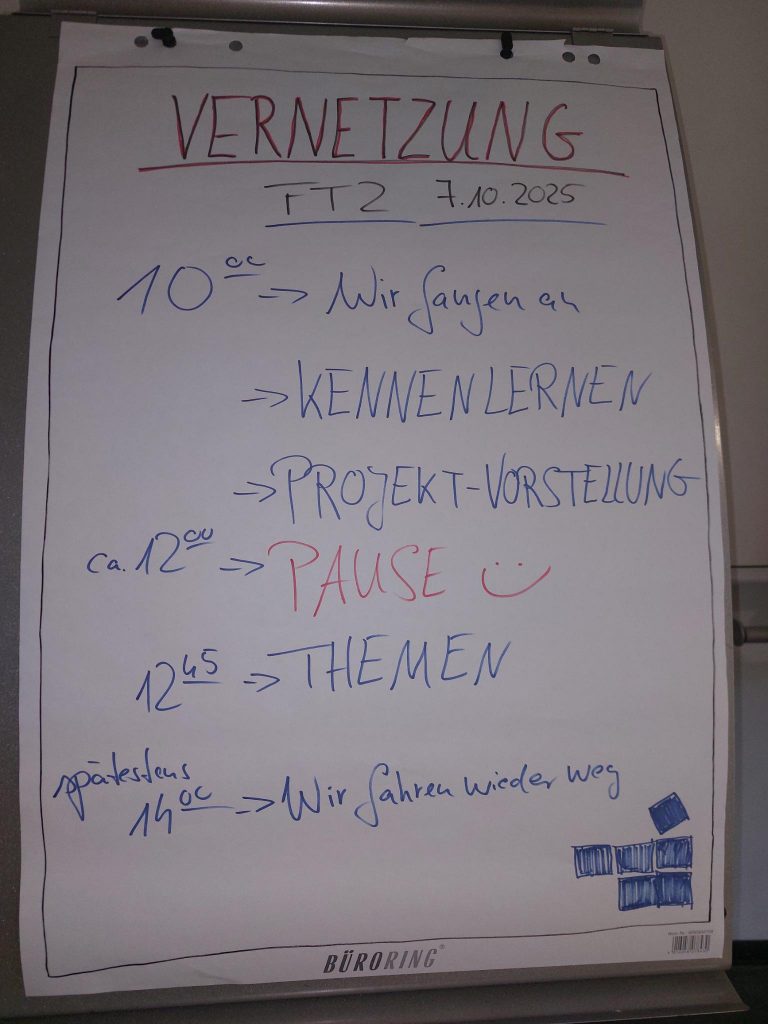 VERNETZUNG
FTZ 7.10.2025
10⁰⁰ → Wir fangen an
→ KENNENLERNEN
→ PROJEKT-VORSTELLUNG
ca. 12⁰⁰ → PAUSE :)
12⁴⁵ → THEMEN
spätestens
14⁰⁰ → Wir fahren wieder weg
BÜRORING®